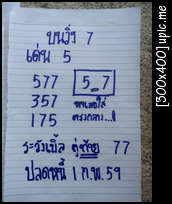 บนวิ่ง 7
เด่น 5
577 5.7
357
175 ตรงกลาง..!
ระวังเบิ้ล คู่ท้าย 77
ปลดหนี้ 1 ก.พ. 59
[300x400] upic.me